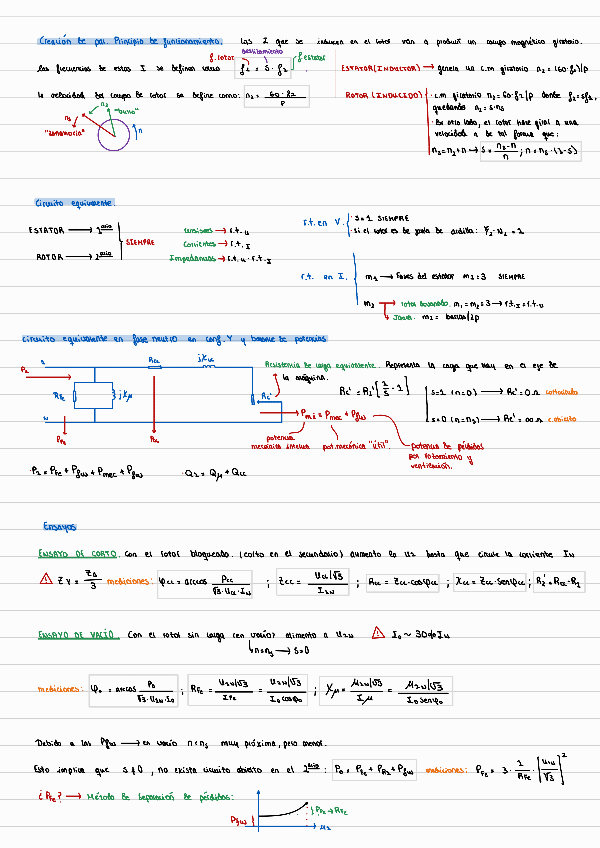 Creación de par. Principio de funcionamiento. Las I que se inducen en el rotor van a producir un campo magnético giratorio.
f.rotor deslizamiento f.estator
Las frecuencias de estas I se definen como f₂ = s · f₁
la velocidad del campo de rotor se define como: n₂ = 60 · f₂ / p
ESTATOR (INDUCTOR) → genera un c.m giratorio n₁ = (60·f₁)/p
ROTOR (INDUCIDO) · c.m giratorio n₂ = 60·f₂/p donde f₂ = sf₁, quedando n₂ = s·ns
· Por otro lado, el rotor hace girar a una velocidad n de tal forma que:
n
Circuito equivalente.
ESTATOR → 1ario
ROTOR → 2ario
SIEMPRE
tensiones → r.t.u
Corrientes → r.t.I
Impedancias → r.t.u · r.t.I
r.t. en V. · s=1 SIEMPRE
· Si el rotor es de jaula de ardilla:
r.t. en I. m₁ → Fases del estator m₁ = 3 SIEMPRE
m₂ → rotor bobinado. m₁ = m₂ = 3 → r.t.I = r.t.u
Jaula. m₂ = barras/2p
Circuito equivalente en fase neutro en conf. Y y balance de potencias
Rcc jXcc
P₁
RFe jXμ
Rc'
PFe Pcu
Resistencia de carga equivalente. Representa la carga que hay en el eje de
la máquina.
Rc' = R₂' [1/s - 1]
s=1 (n=0) → Rc' = 0 Ω cortocircuito
s=0 (n=ns) → Rc' = ∞ Ω c.abierto
Pmi = Pmec + Pfw
potencia mecánica interna
pot.mecánica "útil"
potencia de pérdidas por rozamiento y ventilación.
· Q₁ = Qμ + Qcc
Ensayos
ENSAYO DE CORTO. Con el rotor bloqueado. (corto en el secundario) aumento la U₁ hasta que circule la corriente IN
ZY = ZΔ / 3 mediciones: φcc = arccos Pcc / (√3·Ucc·IN) ; Zcc = (Ucc/√3) / I1N ; Rcc = Zcc·cosφcc ; Xcc = Zcc·senφcc ; R₂' = Rcc - R₁
ENSAYO DE VACÍO. Con el rotor sin carga (en vacío) alimento a U1N I₀ ~ 30% IN
n=ns → s=0
mediciones: φ₀ = arccos P₀ / (√3·U1N·I₀) ; RFe = (U1N/√3) / IFe = (U1N/√3) / (I₀cosφ₀) ; Xμ = (U1N/√3) / Iμ = (U1N/√3) / (I₀senφ₀)
Debido a las Pfw → en vacío n<ns muy próxima, pero menor.
Esto implica que s≠0, no exista circuito abierto en el 2ario: mediciones: PFe = 3 · 1/RFe · [U1N/√3]²
¿PFe? → Método de separación de pérdidas:
Pfw
PFe → RFe